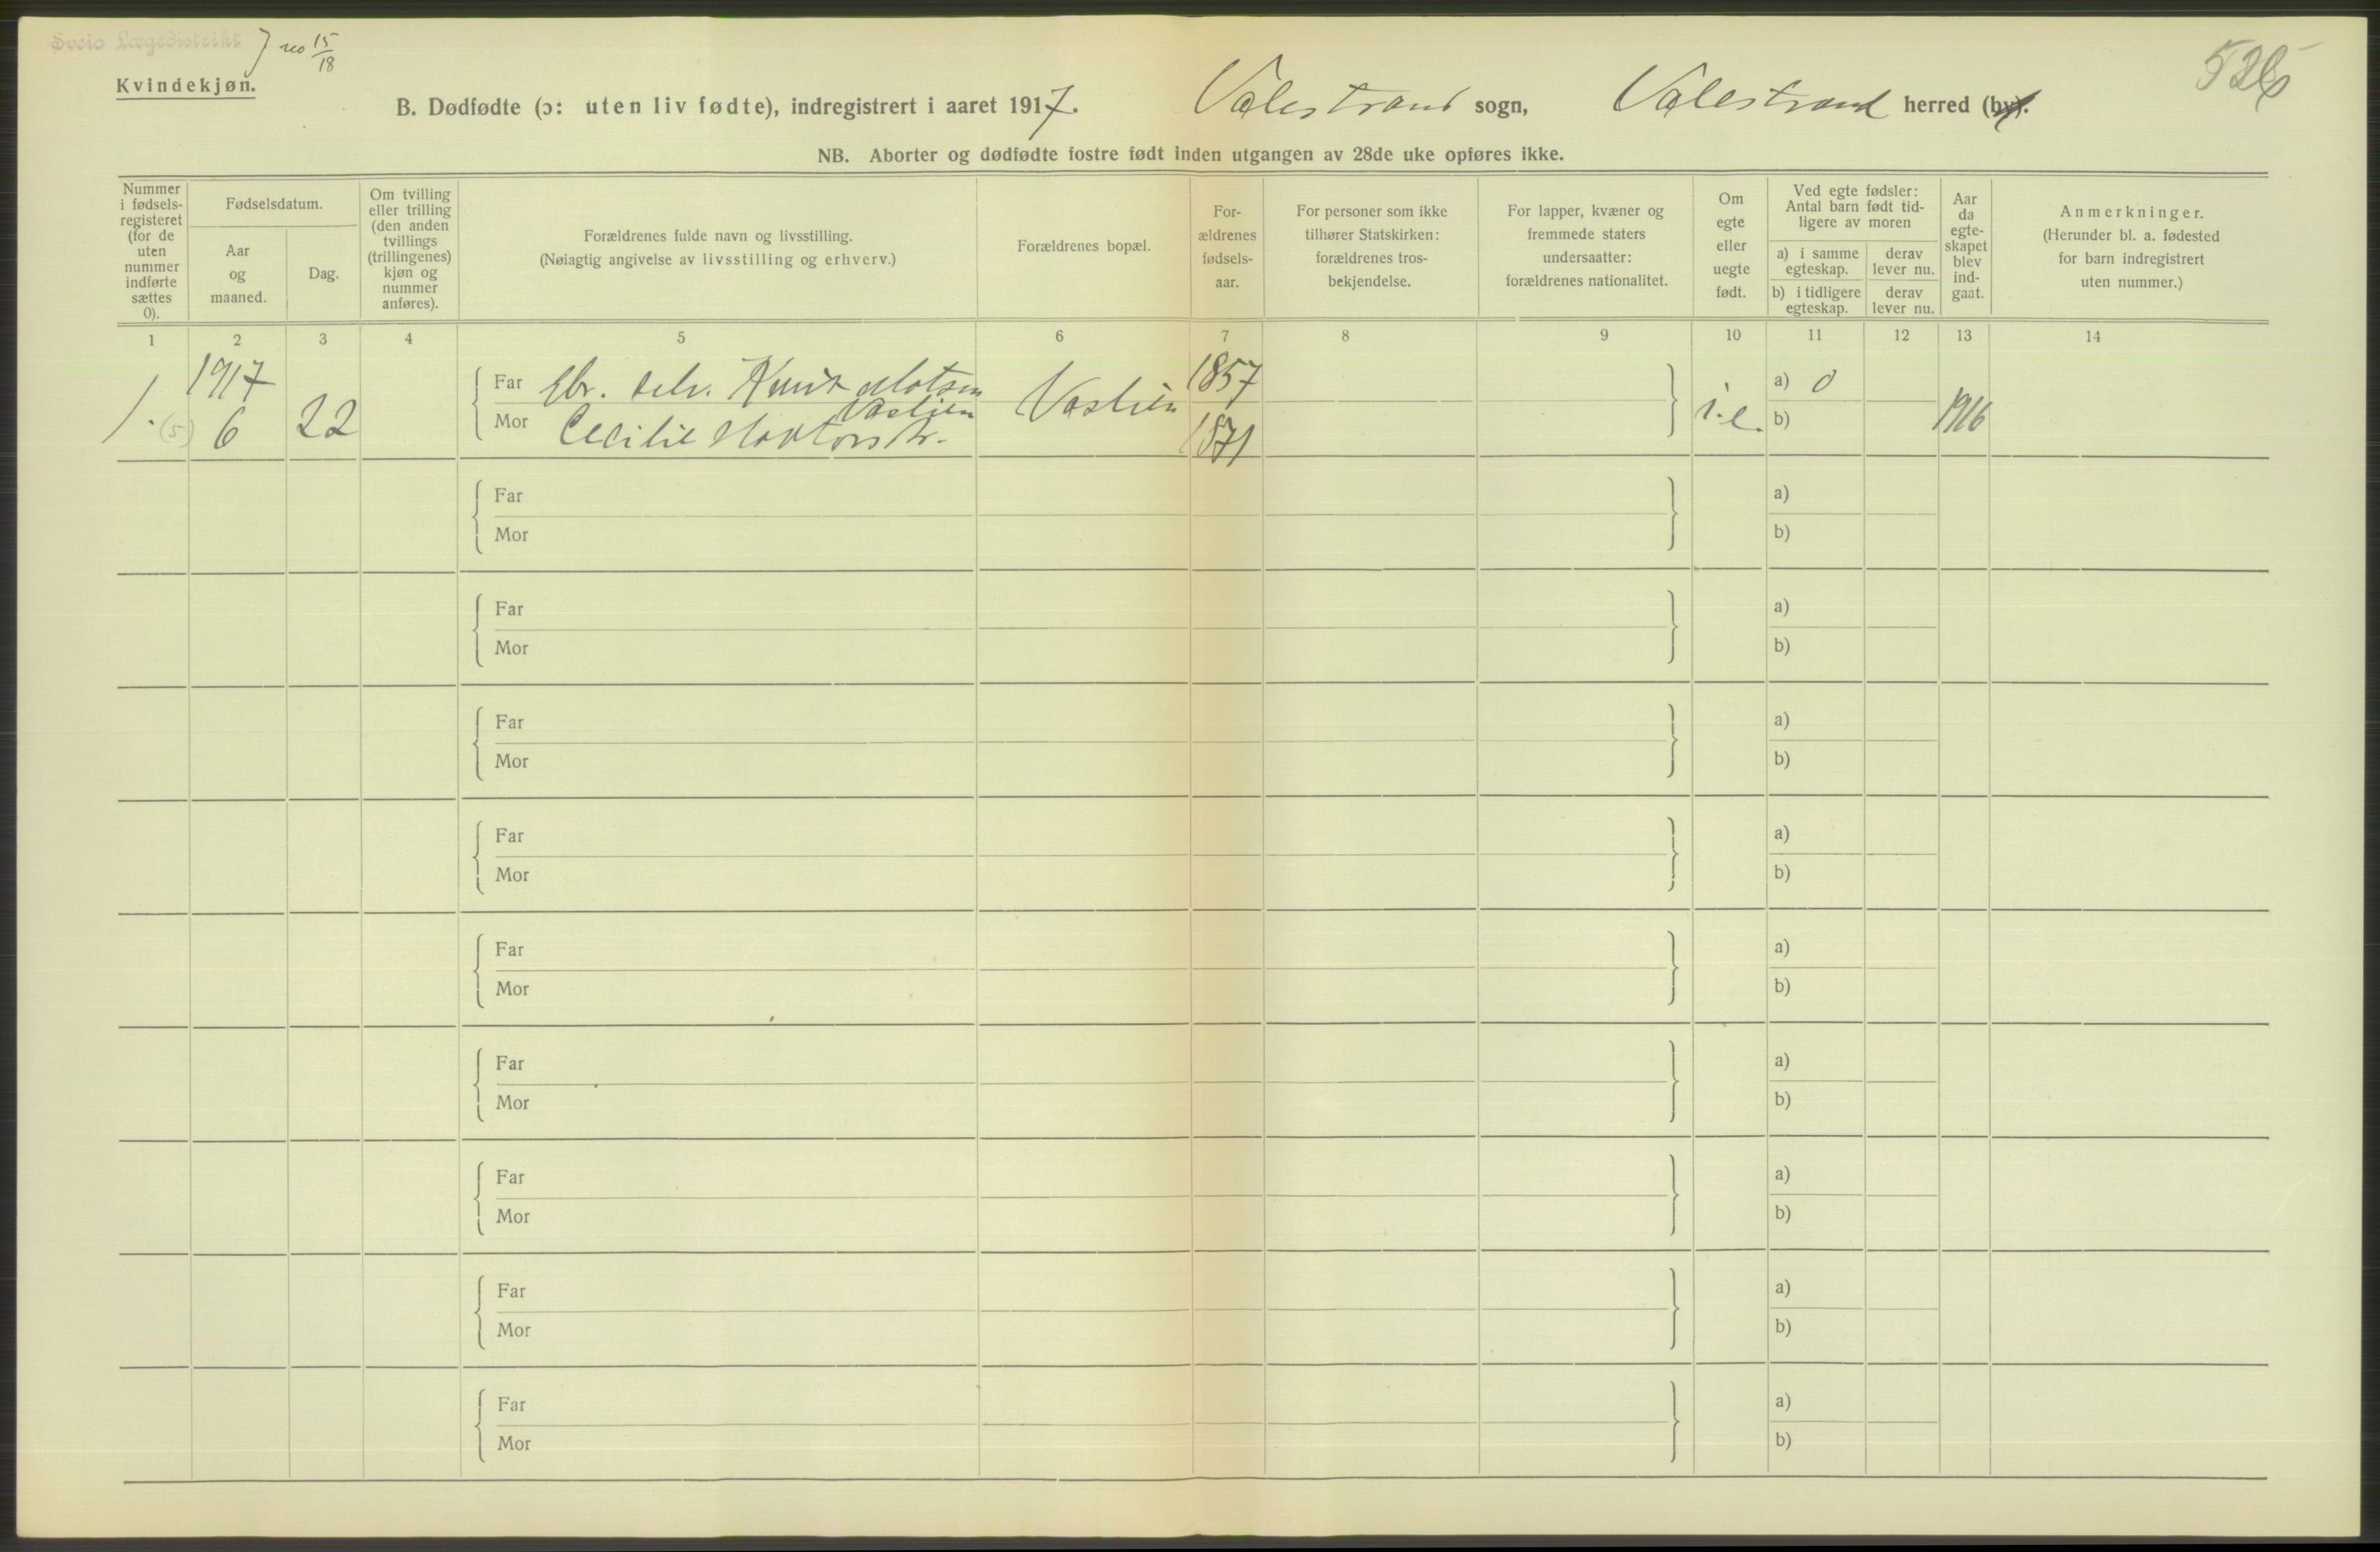 Sveio Lægedistrikt J no 15/18
526
Kvindekjøn.
B. Dødfødte (ɔ: uten liv fødte), indregistrert i aaret 1917. Valestrand sogn, Valestrand herred (by).
NB. Aborter og dødfødte fostre født inden utgangen av 28de uke opføres ikke.
Nummer i fødsels-registeret (for de uten nummer indførte sættes 0).
Fødselsdatum.
Aar og maaned.
Dag.
Om tvilling eller trilling (den anden tvillings (trillingenes) kjøn og nummer anføres).
Forældrenes fulde navn og livsstilling.
(Nøiagtig angivelse av livsstilling og erhverv.)
Forældrenes bopæl.
For-ældrenes fødsels-aar.
For personer som ikke tilhører Statskirken: forældrenes tros-bekjendelse.
For lapper, kvæner og fremmede staters undersaatter: forældrenes nationalitet.
Om egte eller uegte født.
Ved egte fødsler: Antal barn født tid-ligere av moren
a) i samme egteskap.
derav lever nu.
b) i tidligere egteskap.
derav lever nu.
Aar da egte-skapet blev ind-gaat.
Anmerkninger.
(Herunder bl. a. fødested for barn indregistrert uten nummer.)
1 2 3 4 5 6 7 8 9 10 11 12 13 14
1. (5) 1917 6 22
Far Gbr. selv. Knut Matsen Vaslien 1857 a) 0
Vaslien
Mor Cecilie 1871 i.e. b) 1916
Far a)
Mor b)
Far a)
Mor b)
Far a)
Mor b)
Far a)
Mor b)
Far a)
Mor b)
Far a)
Mor b)
Far a)
Mor b)
Far a)
Mor b)
Far a)
Mor b)